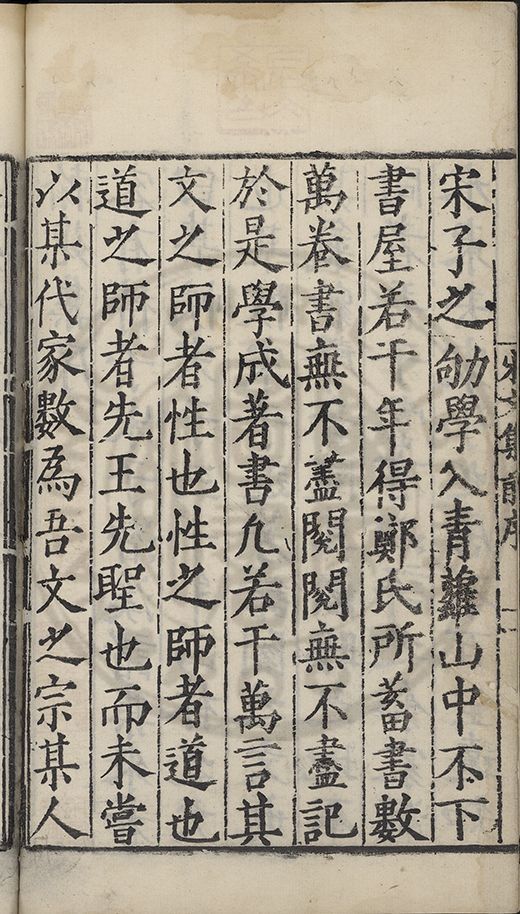 宋子之劬學入青蘿山中不下
書屋若干年得鄭氏所蓄書數
萬卷書無不盡閱閱無不盡記
於是學成著書凢若干萬言其
文之師者性也性之師者道也
道之師者先王先聖也而未嘗
以某代家數爲吾文之宗某人